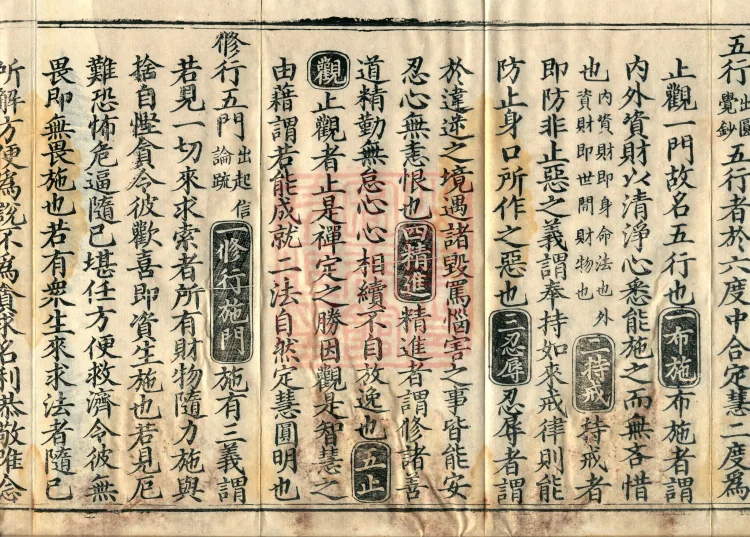 五行出圓覺鈔五行者於六度中合定慧二度爲
止觀一門故名五行也一布施布施者謂
内外資財以清淨心悉能施之而無吝惜
也内資財即身命法也外資財即世間財物也二持戒持戒者
即防非止惡之義謂奉持如來戒律則能
防止身口所作之惡也三忍辱忍辱者謂
於違逆之境遇諸毀罵惱害之事皆能安
忍心無恚恨也四精進精進者謂修諸善
道精勤無怠心心相續不自放逸也五止
觀止觀者止是禪定之勝因觀是智慧之
由藉謂若能成就二法自然定慧圓明也
修行五門出起信論疏一修行施門施有三義謂
若見一切來求索者所有財物隨力施與
捨自慳貪令彼歡喜即資生施也若見厄
難恐怖危逼隨己堪任方便救濟令彼無
畏即無畏施也若有衆生來求法者隨己
所解方便爲說不爲貪求名利恭敬唯念